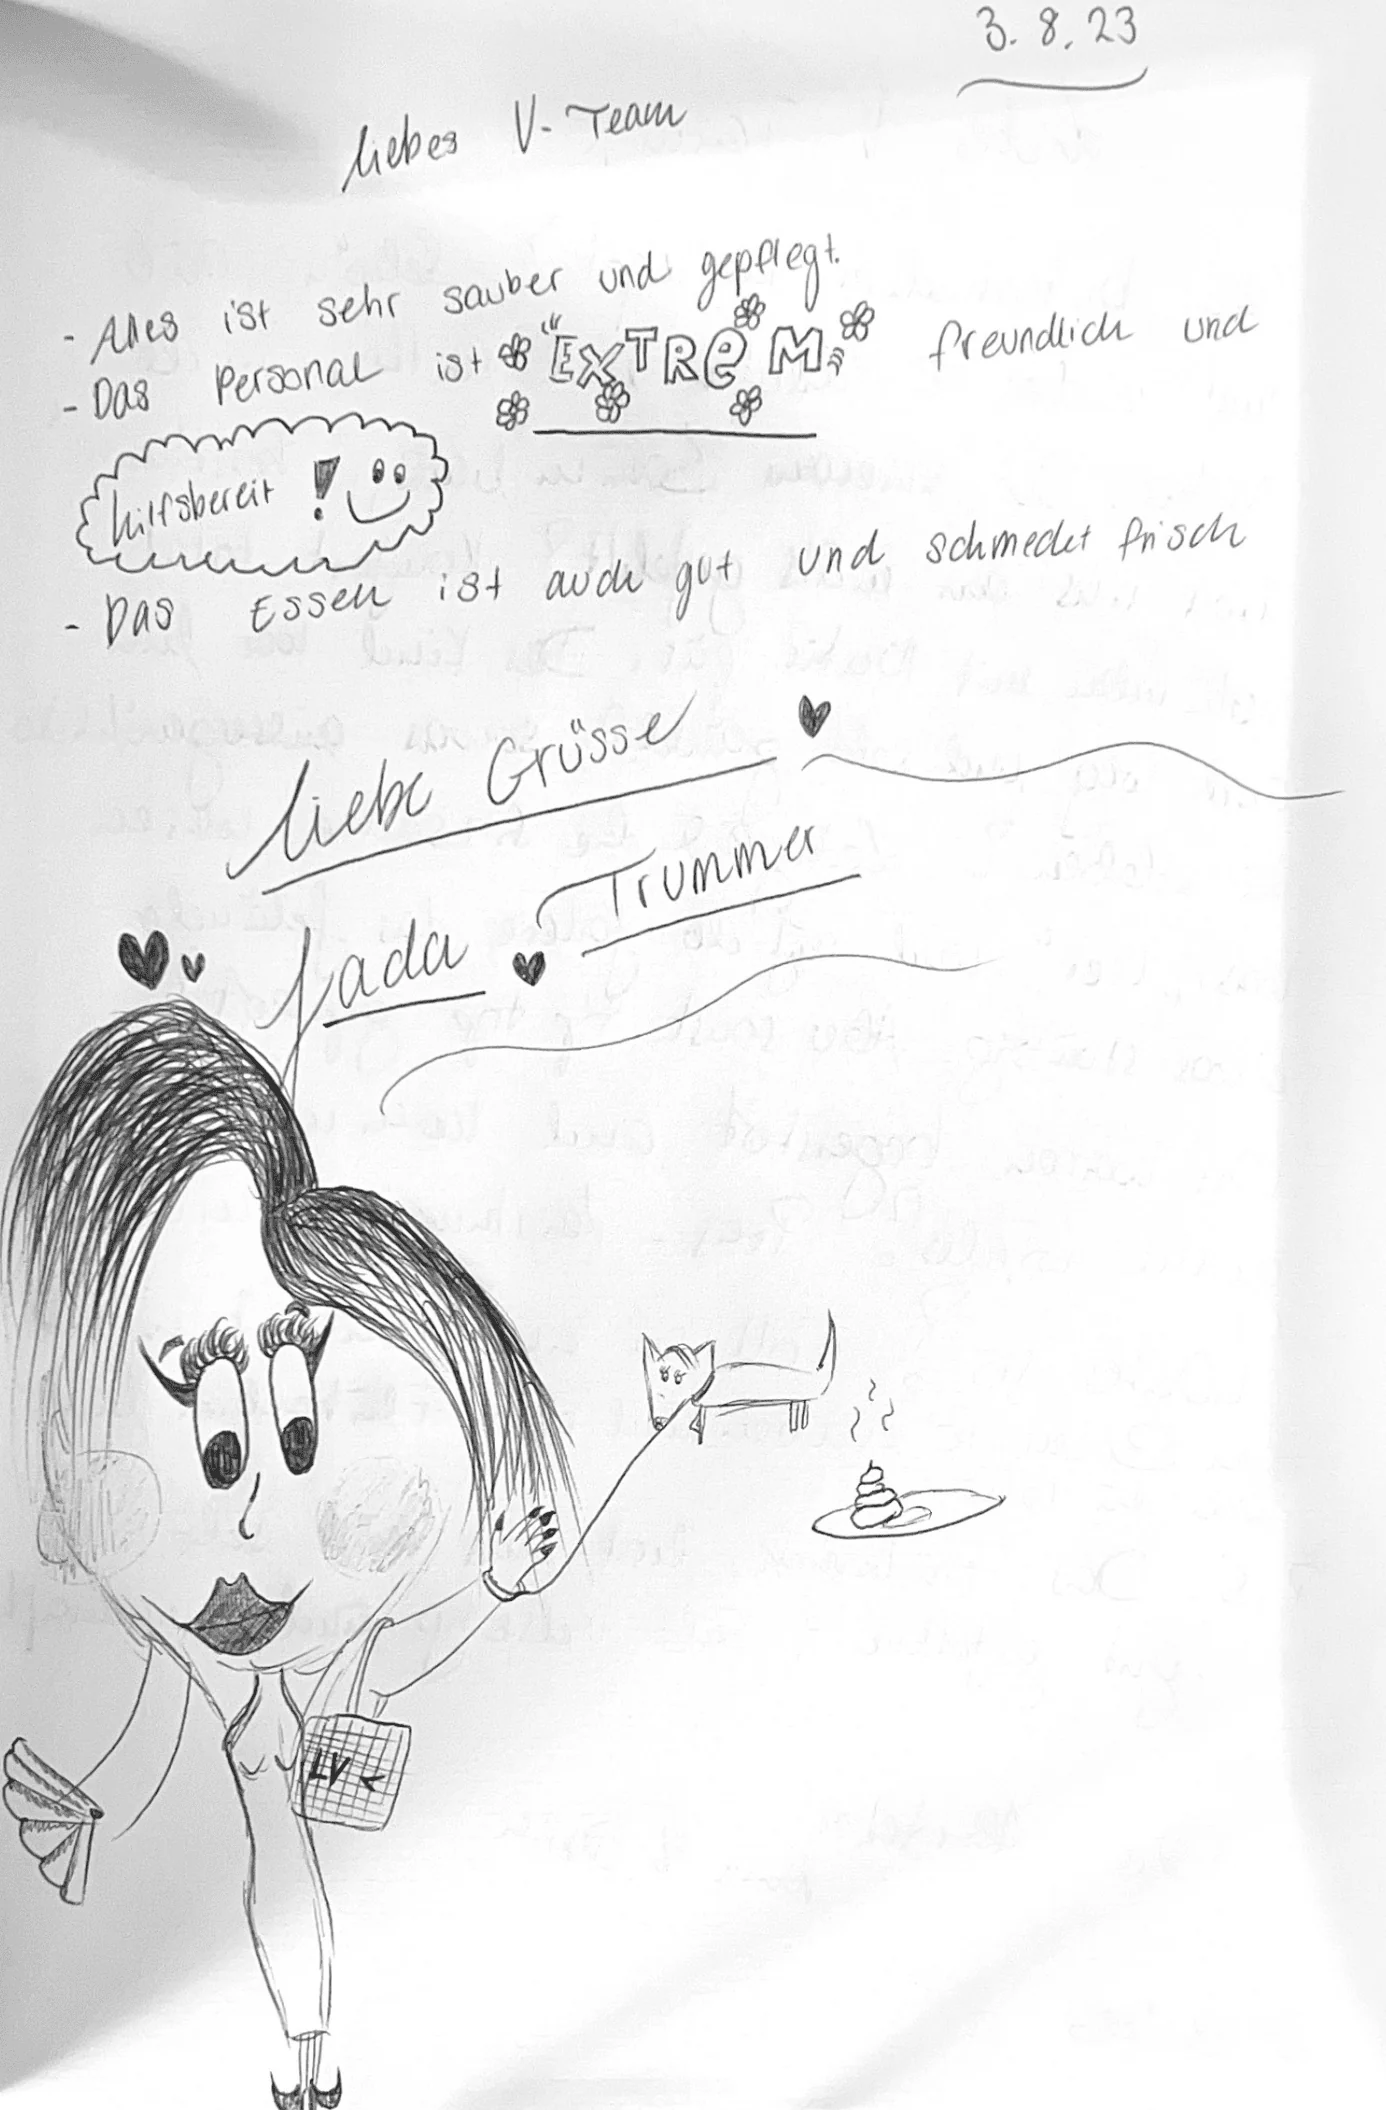 3.8.23
liebes V-Team
- Alles ist sehr sauber und gepflegt.
- Das Personal ist "EXTREM" freundlich und
hilfsbereit!
- Das Essen ist auch gut und schmeckt frisch
liebe Grüsse
Jada Trummer
LV